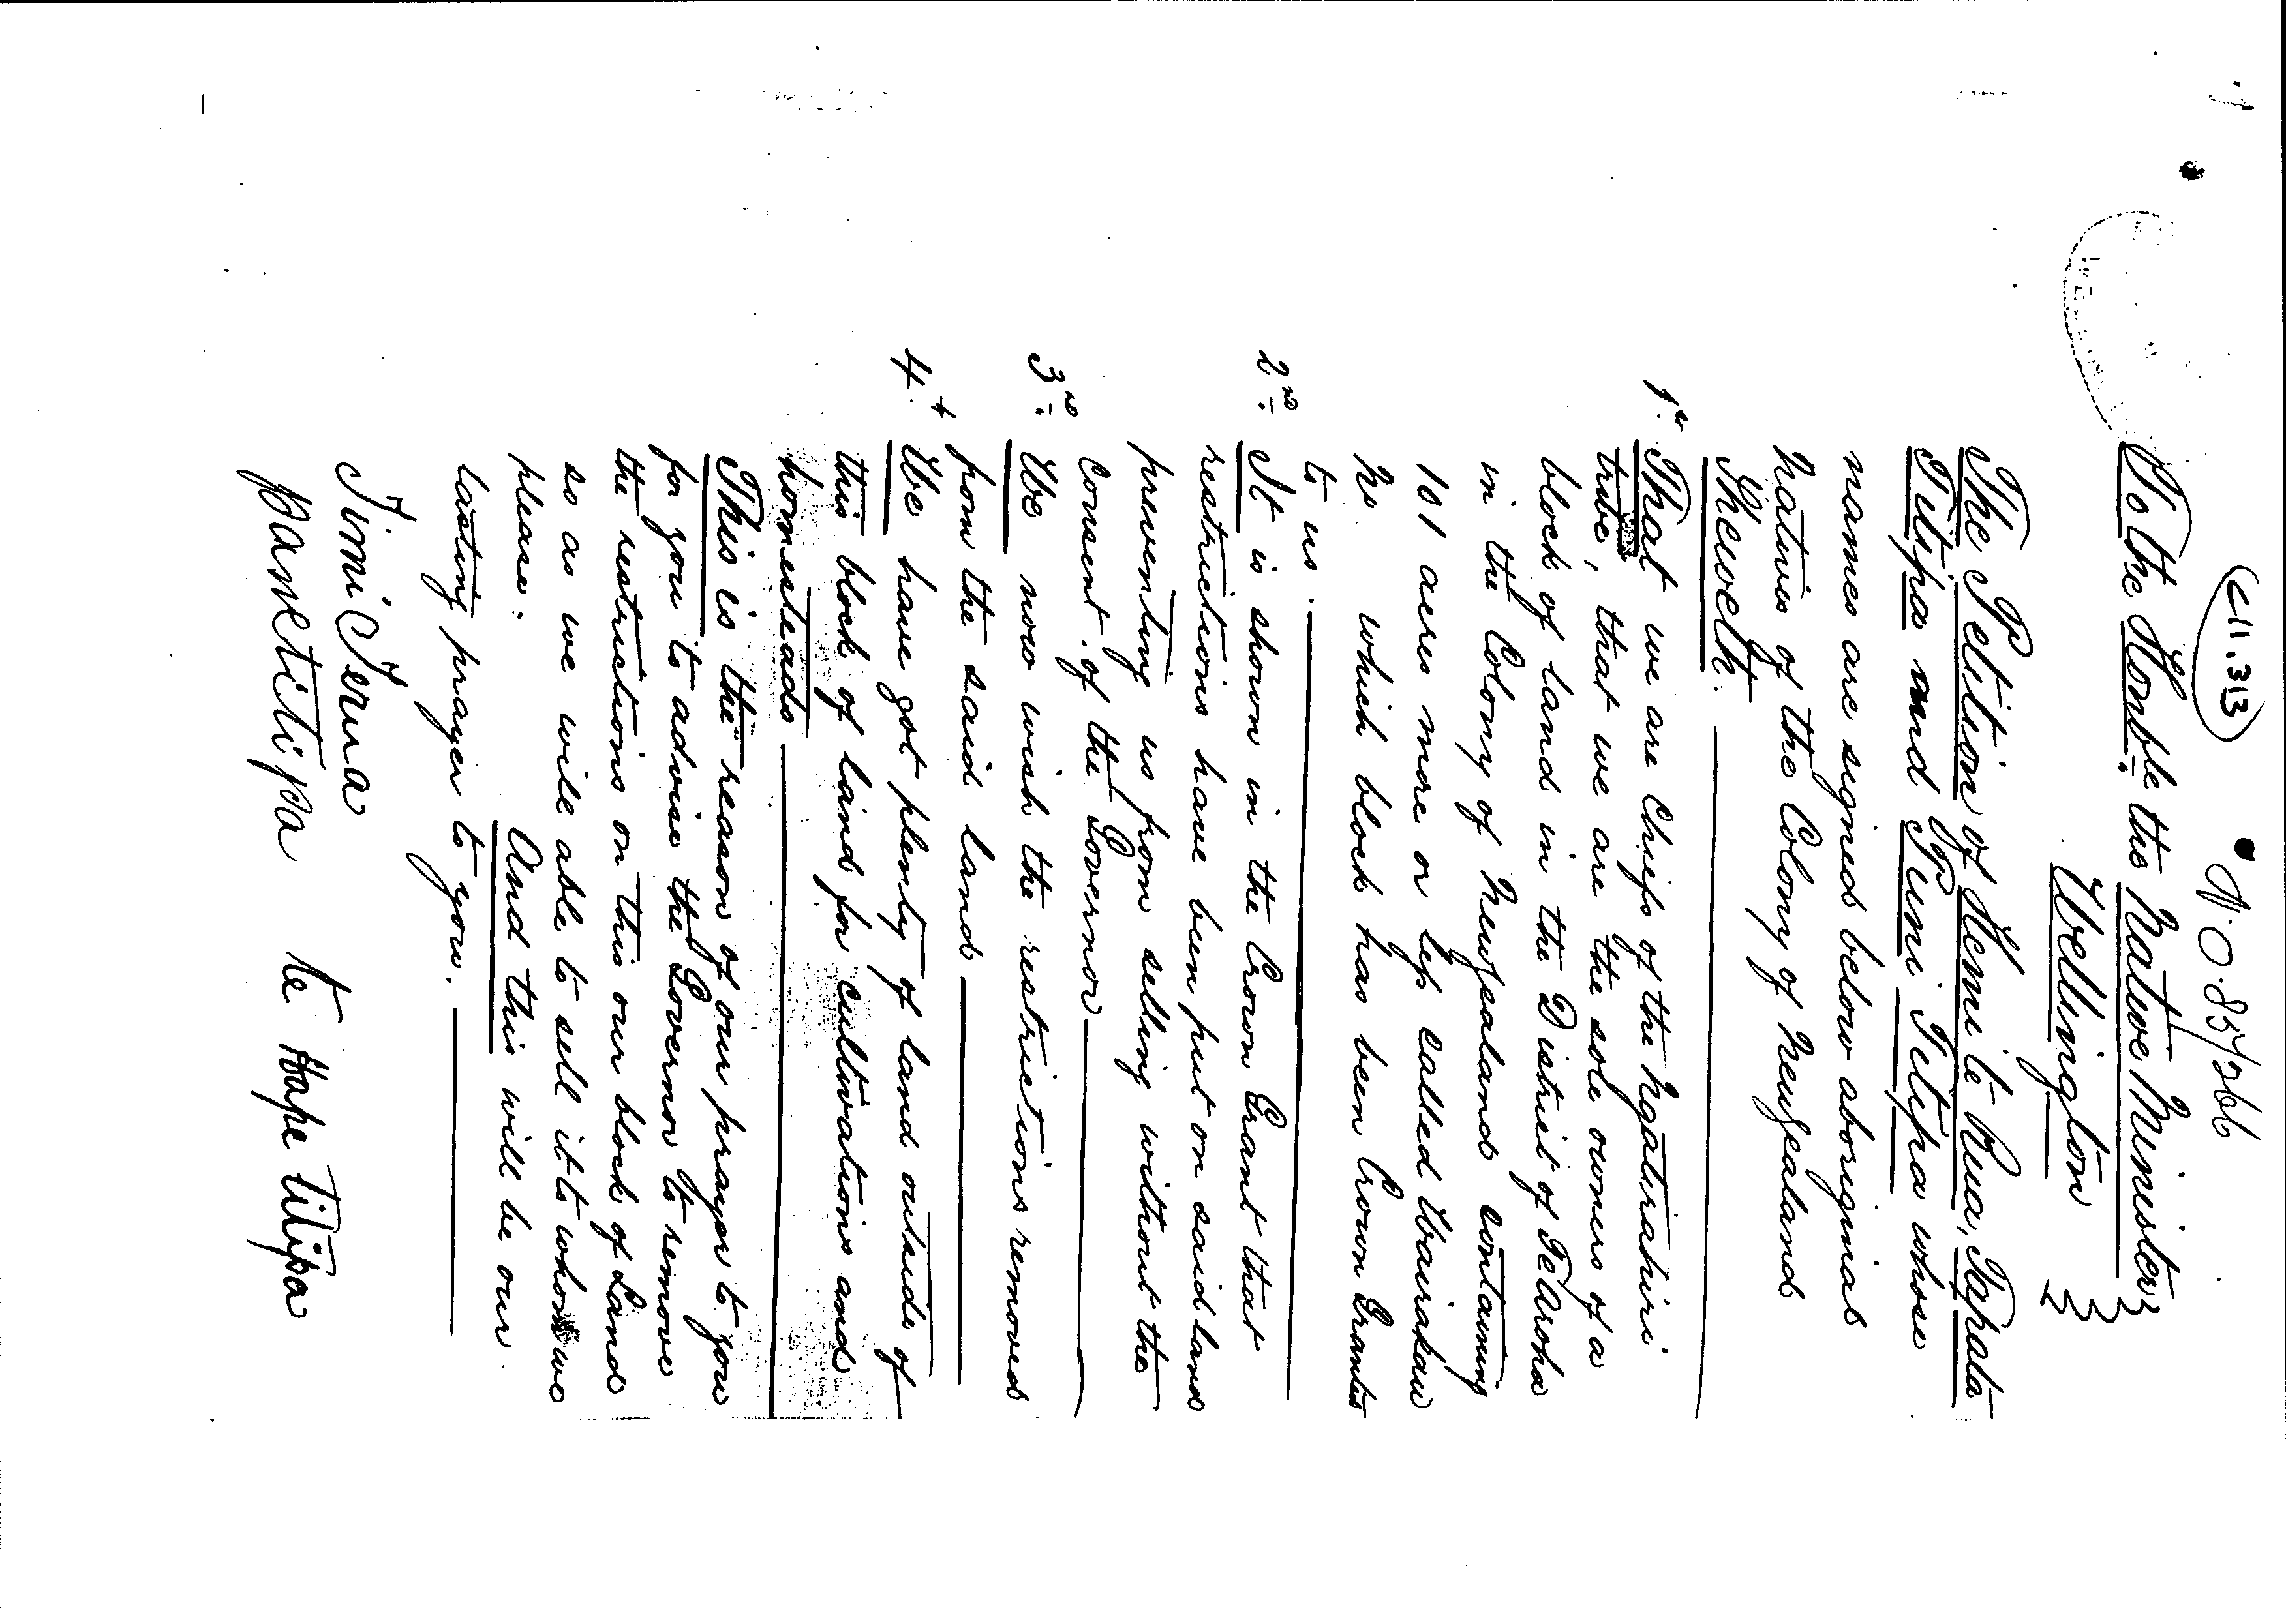 N.O. 85/266
To the Honble the Native Minister
Wellington
The Petition of Hemi te Rua, Tapata
Titipa and Pene Titipa whose
names are signed below aboriginal
natives of the Colony of New Zealand
Sheweth.
1st That we are Chiefs of the Ngatirahiri
tribe, that we are the sole owners of a
block of land in the District of Te Aroha
in the Colony of New Zealand containing
101 acres more or less called Wairakau
No which block has been Crown Granted
to us.
2nd It is shown in the Crown Grant that
restrictions have been put on said land
preventing us from selling without the
Consent of the Governor
3rd We now wish the restrictions removed
from the said land
4.t We have got plenty of land outside of
this block of land for cultivations and
homesteads
This is the reason of our prayer to you
for you to advise the Governor to remove
the restrictions on this our block of Land
so as we will able to sell it to whom we
please.
And this will be our
lasting prayer to you.
te Hape titipa